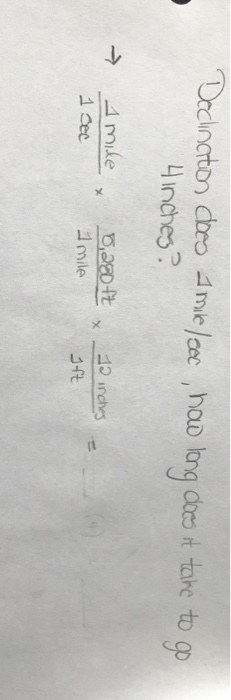 Declination does 1 mile/sec, how long does it take to go
4 inches?
→ 1 mile / 1 sec × 5,280 ft / 1 mile × 12 inches / 1 ft =